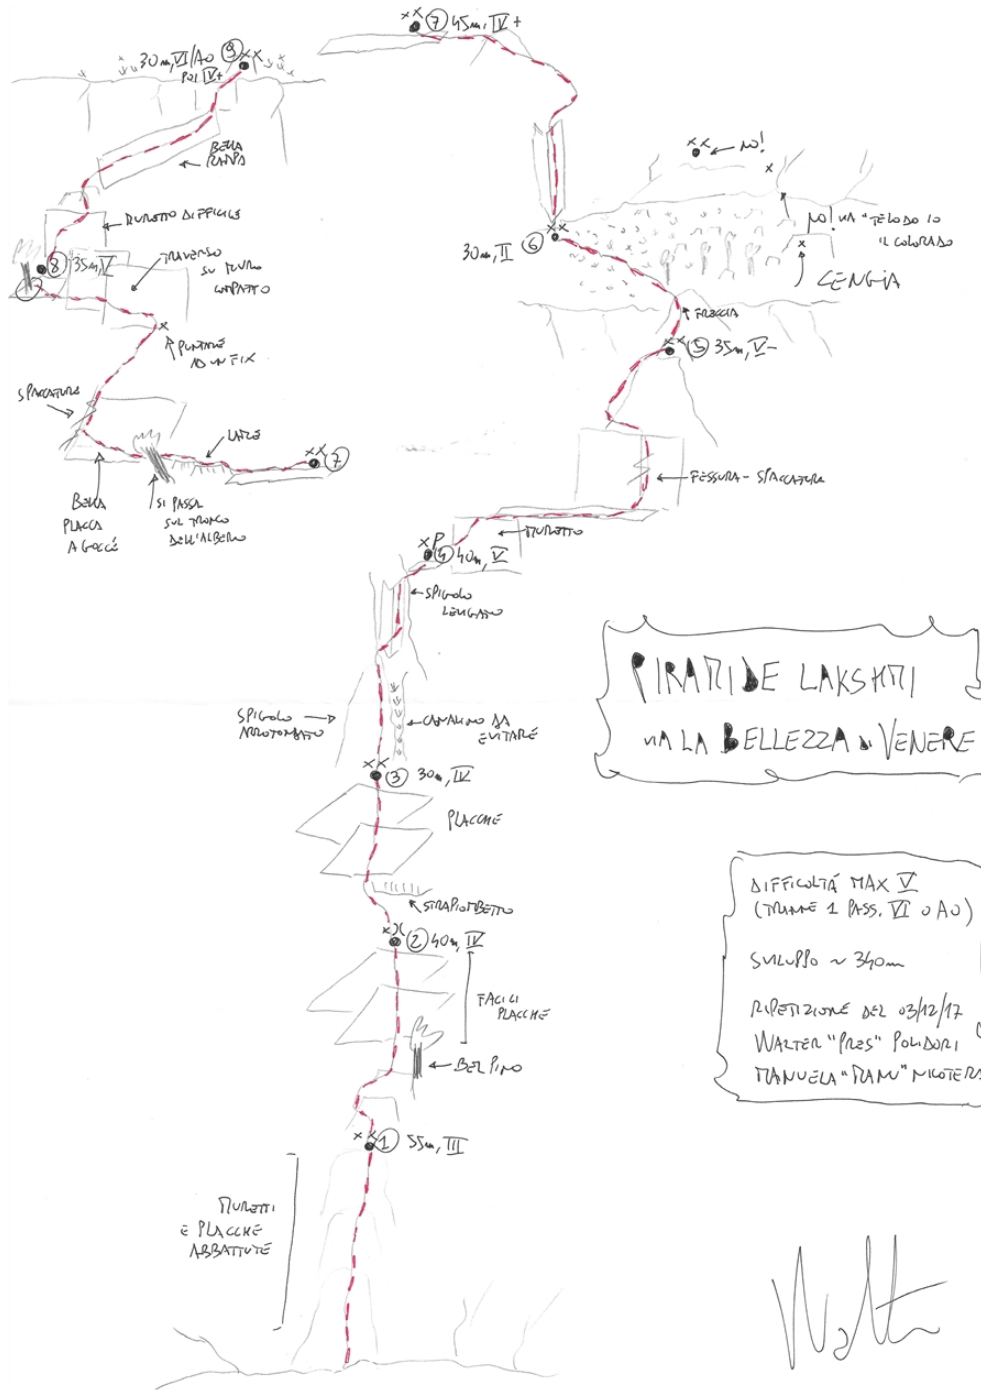 XX 7 45m, IV+
30m, VI/A0 9 XX
POI IV+
BELLA
RAMPA
MURETTO DIFFICILE
8 35m, V
TRAVERSO
SU MURO
COMPATTO
PUNTARE
AD UN FIX
SPACCATURA
LAME
XX 7
BELLA
PLACCA
A GOCCE
SI PASSA
SUL TRONCO
DELL'ALBERO
XX NO!
X
NO! VIA "TELODO IO
IL COLORADO
X
CENGIA
XX
30m, II 6
FRECCIA
XX 5 35m, V-
FESSURA - SPACCATURA
MURETTO
XP
4 40m, V
SPIGOLO
LEVIGATO
SPIGOLO
ARROTONDATO
CANALINO DA
EVITARE
XX
3 30m, IV
PLACCHE
STRAPIOMBETTO
XX
2 40m, IV
FACILI
PLACCHE
BEL PINO
XX 1 55m, III
MURETTI
E PLACCHE
ABBATTUTE
PIRAMIDE LAKSHMI
VIA LA BELLEZZA DI VENERE
DIFFICOLTÁ MAX V
(TRANNE 1 PASS. VI o A0)
SVILUPPO ~ 340m
RIPETIZIONE DEL 03/12/17
WALTER "PRES" POLIDORI
MANUELA "MANU" NICOTERA